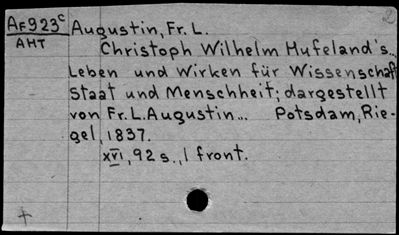 AF923c Augustin, Fr. L.
AHT
Christoph Wilhelm Hufeland's...
Leben und Wirken für Wissenschaft
Staat und Menschheit; dargestellt
von Fr. L. Augustin... Potsdam, Rie-
gel, 1837.
xvi, 92 s., 1 front.